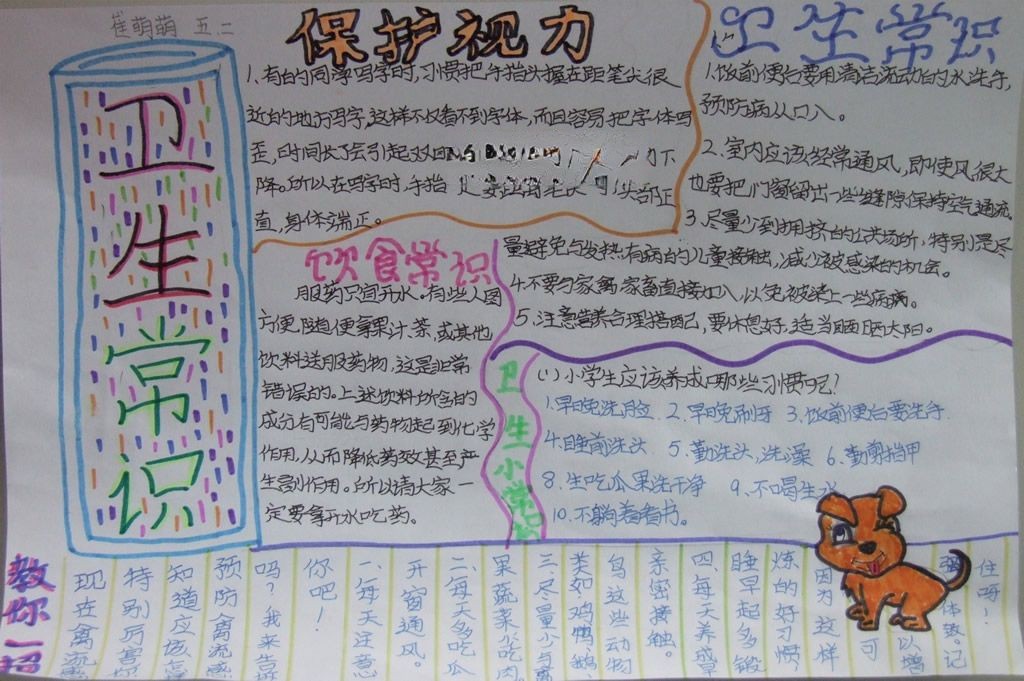 崔萌萌 五.二
卫生常识
保护视力
1.有的同学写字时,习惯把手指头握在距笔尖很
近的地方写字,这样不仅看不到字体,而且容易把字体写
歪,时间长了会引起双眼
下
降。所以在写字时,手指
头部正
直,身体端正。
卫生常识
1.饭前便后要用清洁流动的水洗手,
预防病从口入。
2.室内应该经常通风,即使风很大
也要把门窗留出一些缝隙保持空气通流。
3.尽量少到拥挤的公共场所,特别是尽
量避免与发热,有病的儿童接触,减少被感染的机会。
4.不要与家禽,家畜直接加入,以免被染上一些病病。
5.注意营养合理搭配,要休息好,适当晒晒太阳。
饮食常识
服药只宜开水。有些人图
方便,随便拿果汁、茶,或其他
饮料送服药物,这是非常
错误的。上述饮料所含的
成分有可能与药物起到化学
作用,从而降低药效甚至产
生副作用。所以请大家一
定要拿开水吃药。
卫生小常识
(1)小学生应该养成哪些习惯呢?
1.早晚洗脸 2.早晚刷牙 3.饭前便后要洗手
4.睡前洗头 5.勤洗头,洗澡 6.勤剪指甲
8.生吃瓜果洗干净 9.不喝生水
10.不躺着看书。
教你一招
现在禽流
特别厉害
知道应该怎
预防禽流感
吗?我来告诉
你吧!
一、每天注意
开窗通风。
二、每天多吃瓜
果蔬菜少吃肉
三、尽量少与禽
类如鸡鸭鹅
鸟这些动物
亲密接触。
四、每天养成早
睡早起多锻
炼的好习惯
因为这样
可
以增
体致。记
住呀!